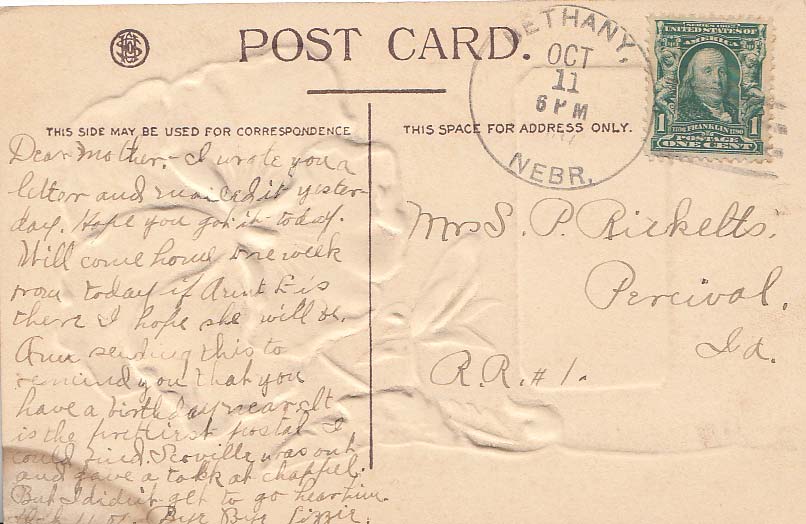 POST CARD.
BETHANY,
OCT
11
6 PM
NEBR.
SERIES 1902
UNITED STATES OF
AMERICA
1 FRANKLIN 1
POSTAGE
ONE CENT
THIS SIDE MAY BE USED FOR CORRESPONDENCE
THIS SPACE FOR ADDRESS ONLY.
Dear Mother:- I wrote you a
letter and mailed it yester-
day. Hope you got it today.
Will come home one week
from today if Aunt E is
there I hope she will be.
Am sending this to
remind you that you
have a birthday near. It
is the prettiest postal I
could find. Scoville was out
and gave a talk at chappel.
But I didn't get to go hear him.
Bye Bye Lizzie.
Mrs S. P. Ricketts.
Percival.
Ia.
R.R. # 1.